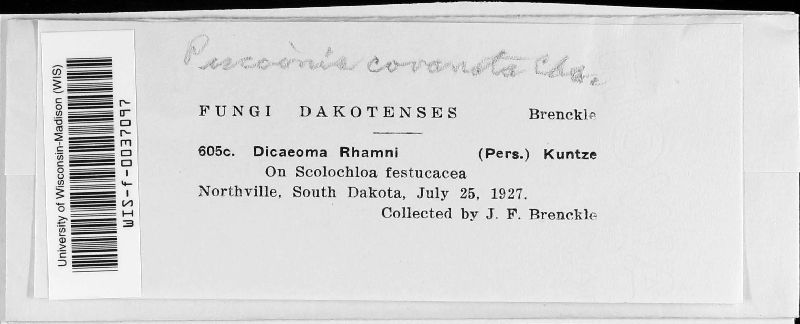 Puccinia coronata Cda.
FUNGI DAKOTENSES Brenckle
605c. Dicaeoma Rhamni (Pers.) Kuntze
On Scolochloa festucacea
Northville, South Dakota, July 25, 1927.
Collected by J. F. Brenckle
University of Wisconsin-Madison (WIS)
WIS-f-0037097